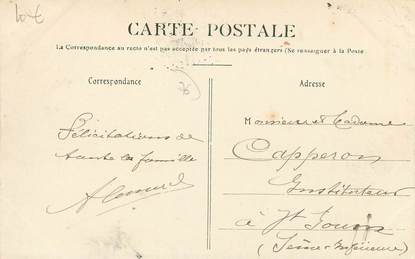 10€
CARTE POSTALE
La Correspondance au recto n'est pas acceptée par tous les pays étrangers (Se renseigner à la Poste)
Correspondance
Adresse
Félicitations de
toute la famille
Monsieur et Madame
Capperon
Instituteur
à St Jouin
(Seine-Inférieure)